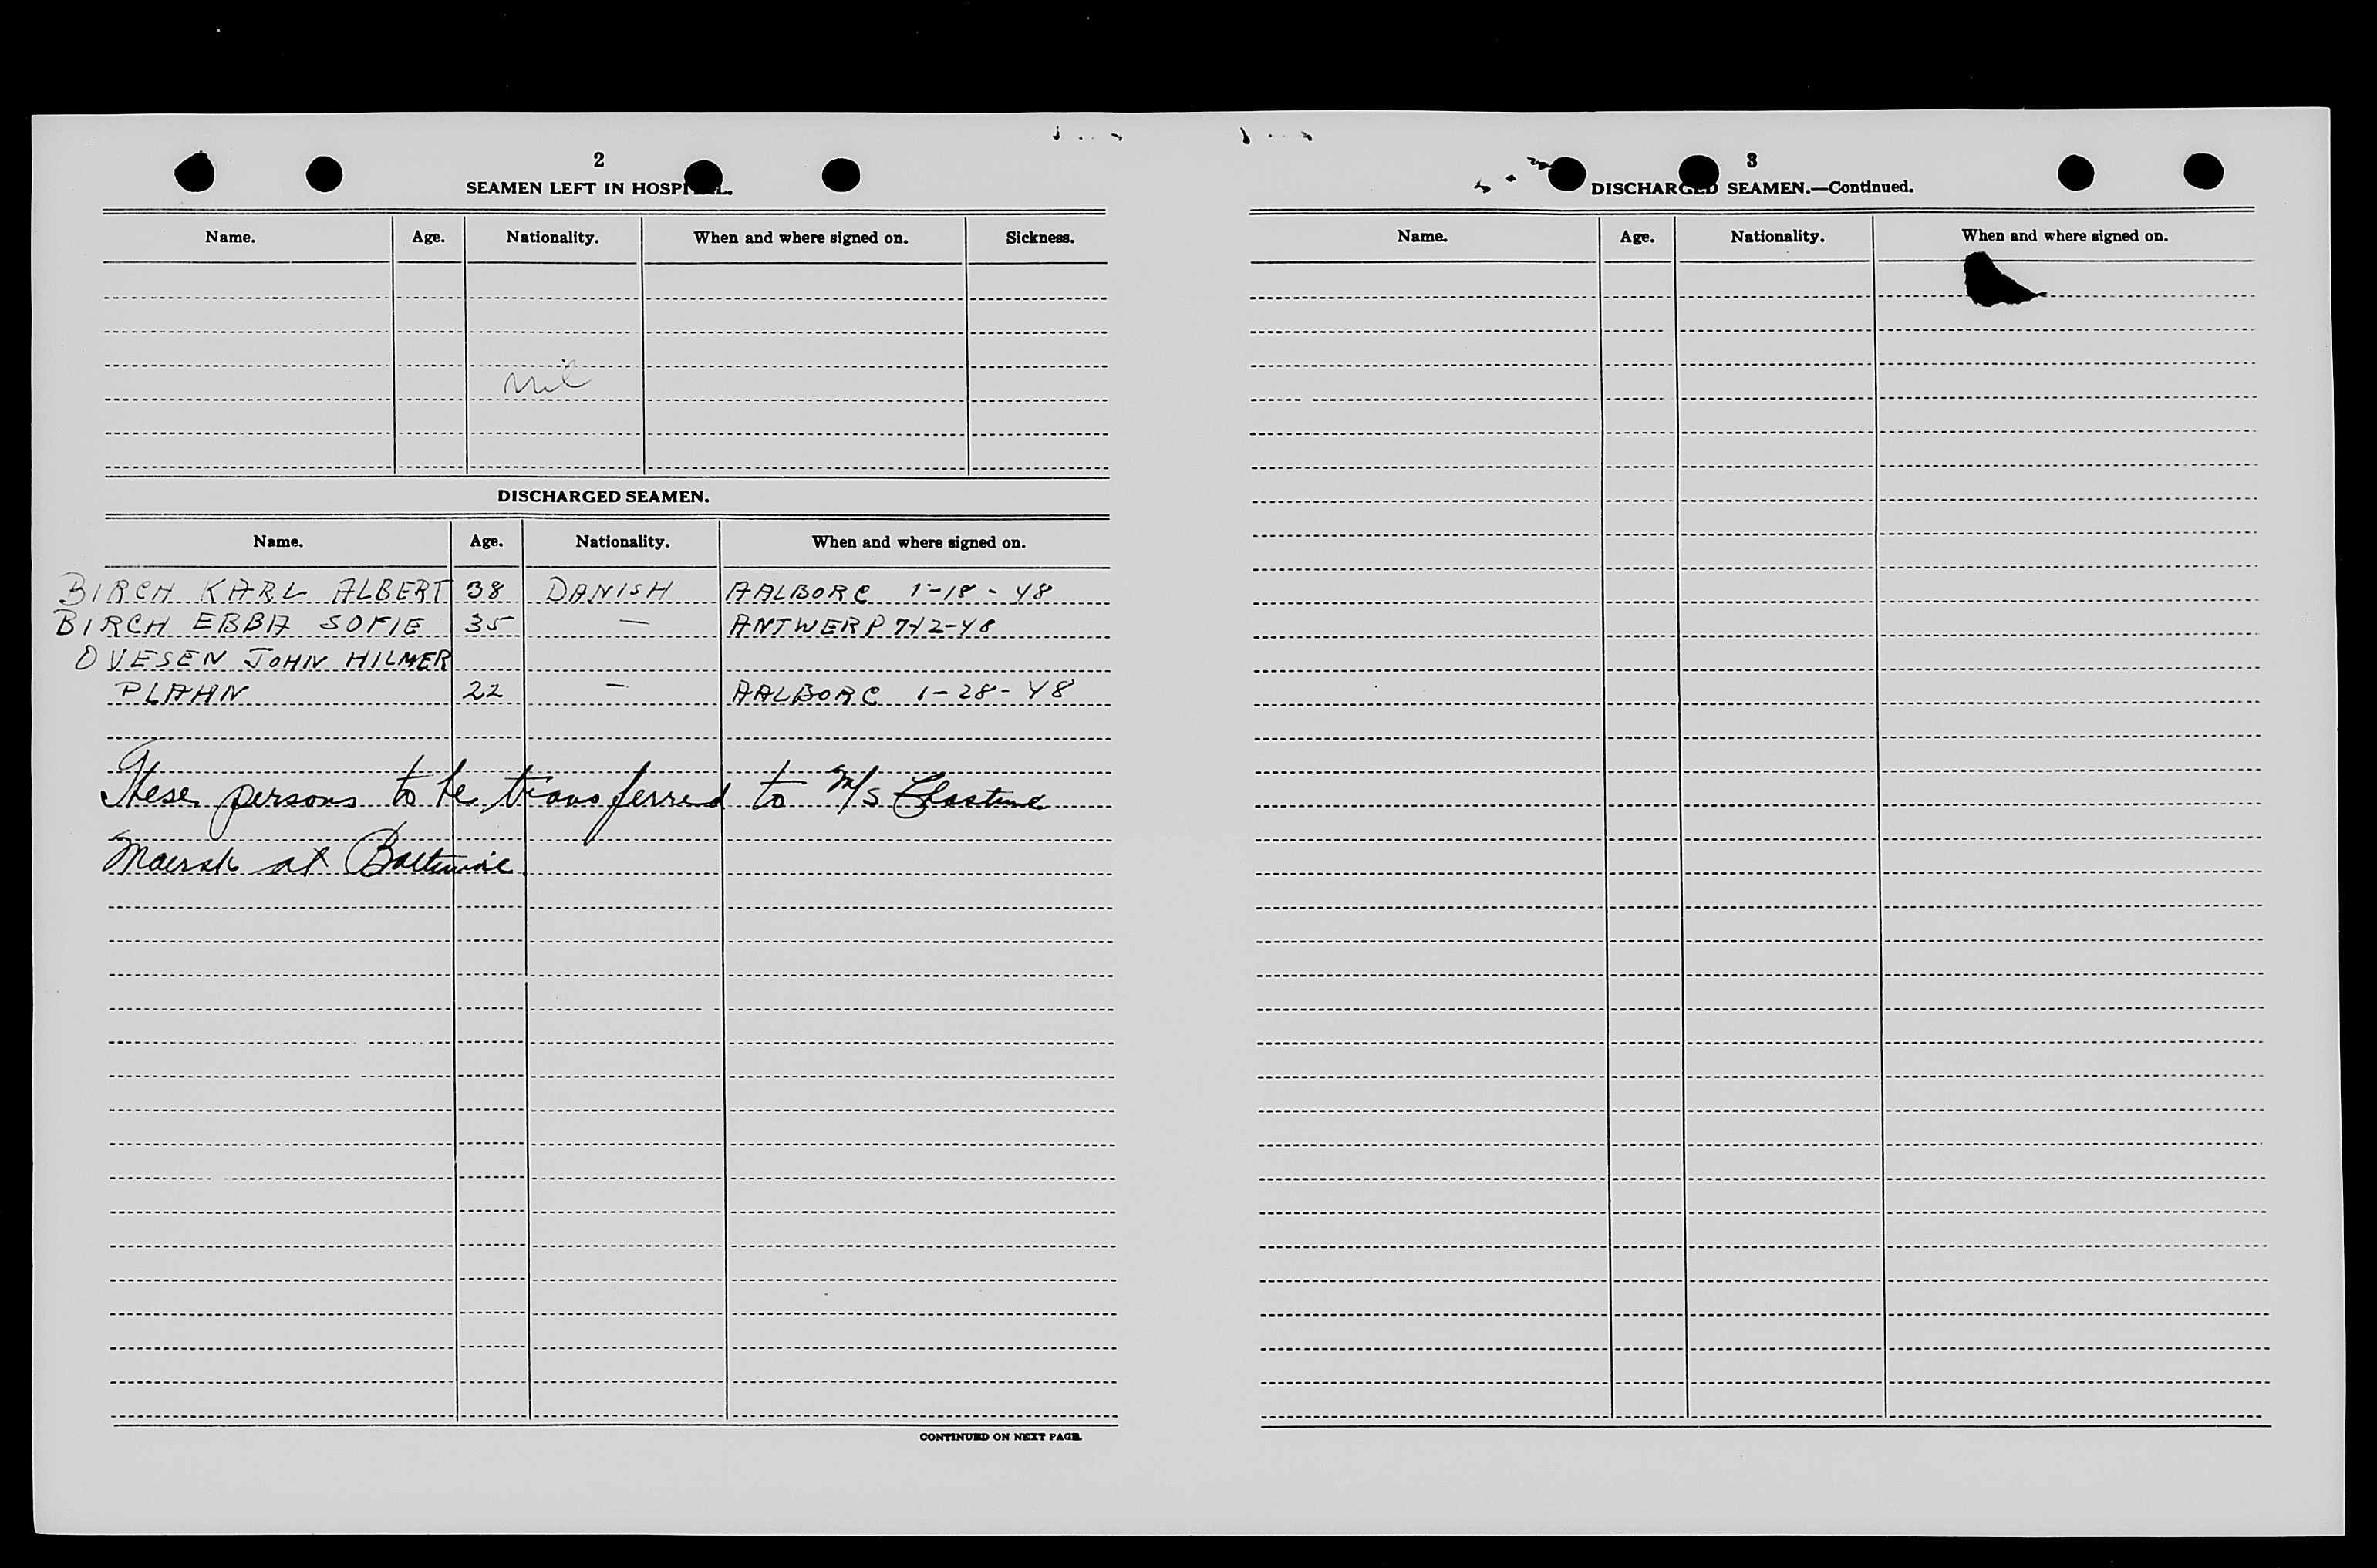 2
SEAMEN LEFT IN HOSPITAL.
Name. Age. Nationality. When and where signed on. Sickness.
nil
DISCHARGED SEAMEN.
Name. Age. Nationality. When and where signed on.
BIRCH KARL ALBERT 38 DANISH AALBORG 1-18-48
BIRCH EBBA SOFIE 35 — ANTWERP 7-12-48
OVESEN JOHN HILMER
PLAHN 22 — AALBORG 1-28-48
These persons to be transferred to M/S Chastine
Maersk at Baltimore.
CONTINUED ON NEXT PAGE.
3
DISCHARGED SEAMEN.—Continued.
Name. Age. Nationality. When and where signed on.